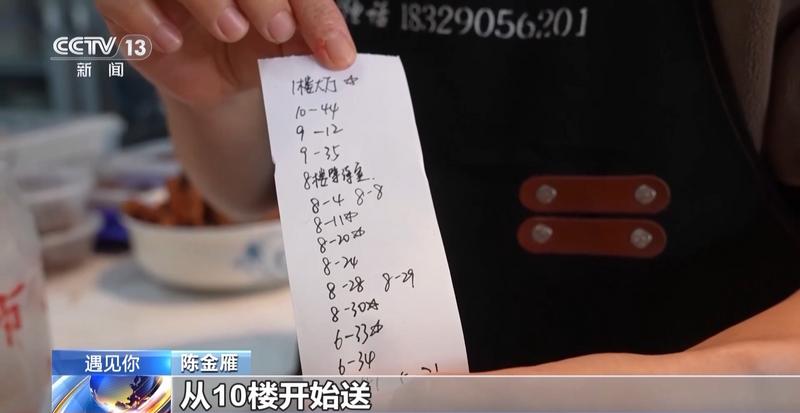 CCTV 13
新闻
电话 18329056201
1楼大厅 ☆
10-44
9-12
9-35
8楼等待室
8-4 8-8
8-11☆
8-20☆
8-24
8-28 8-29
8-30☆
6-33☆
6-34
遇见你
陈金雁
从10楼开始送